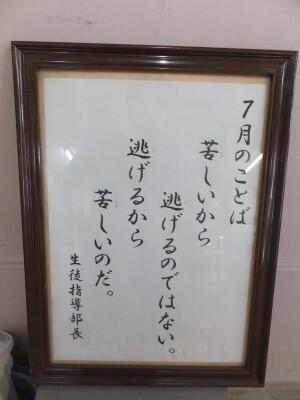 7月のことば
苦しいから
逃げるのではない。
逃げるから
苦しいのだ。
生徒指導部長